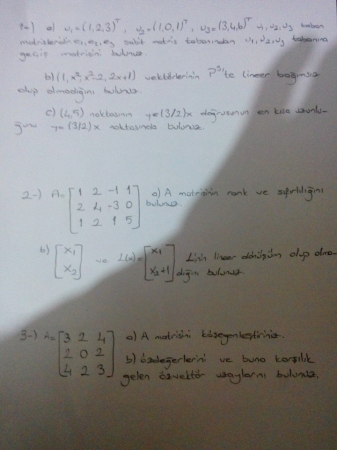 1-) a) v₁=(1,2,3)ᵀ, v₂=(1,0,1)ᵀ, v₃=(3,4,6)ᵀ v₁,v₂,v₃ taban
matrisleridir e₁,e₂,e₃ sabit matris tabanından v₁,v₂,v₃ tabanına
geçiş matrisini bulunuz.
b) (1, x², x²-2, 2x+1) vektörlerinin te lineer bağımsız
olup olmadığını bulunuz.
c) (4,5) noktasının y=(3/2)x doğrusunun en kısa uzunlu-
ğunu y=(3/2)x noktasında bulunuz.
2-) A= [1 2 -1 1 a) A matrisinin rank ve sıfırlılığını
2 4 -3 0 bulunuz.
1 2 1 5]
b) [x₁ ve L(x)= [x₁ L'nin lineer dönüşüm olup olma-
x₂] x₂+1] dığını bulunuz.
3-) A= [3 2 4 a) A matrisini köşegenleştiriniz.
2 0 2 b) özdeğerlerini ve buna karşılık
4 2 3] gelen özvektör uzaylarını bulunuz.